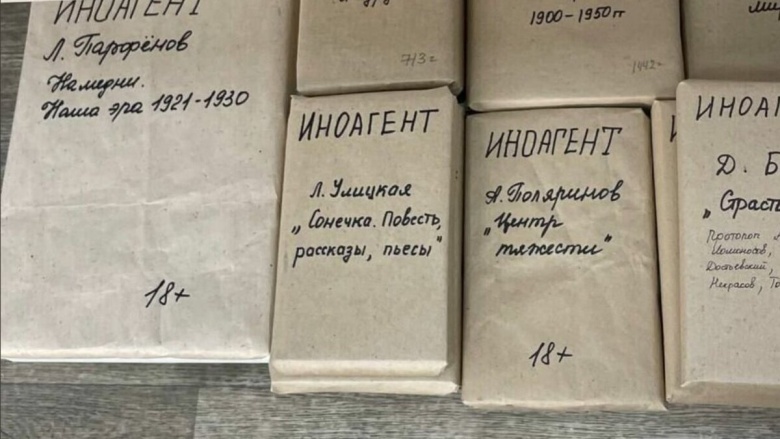 ИНОАГЕНТ
Л. Парфёнов
Намедни.
Наша эра 1921-1930
18+
713г
1900-1950гг
1442г
ИНОАГЕНТ
Л. Улицкая
„Сонечка. Повесть,
рассказы, пьесы"
ИНОАГЕНТ
А. Поляринов
„Центр
тяжести"
18+
ИНОАГЕН
Д. Б
„Страсть
Протопоп
Достоевский,
Некрасов, То